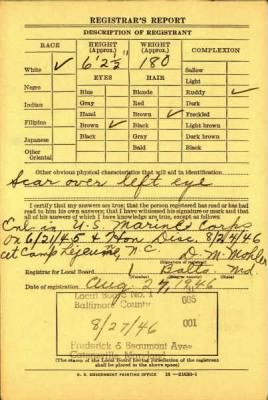 REGISTRAR'S REPORT
DESCRIPTION OF REGISTRANT
RACE HEIGHT (Approx.) WEIGHT (Approx.) COMPLEXION
White ✓ 6'2½" 180 Sallow
EYES HAIR Light
Negro Blue Blonde Ruddy ✓
Indian Gray Red Dark
Filipino Hazel Brown ✓ Freckled
Brown ✓ Black Light brown
Japanese Black Gray Dark brown
Other Oriental Bald Black
Other obvious physical characteristics that will aid in identification
Scar over left eye
I certify that my answers are true; that the person registered has read or has had
read to him his own answers; that I have witnessed his signature or mark and that
all of his answers of which I have knowledge are true, except as follows:
Enl. in U.S. Marine Corps
on 6/21/45 & Hon Disc. 8/24/46
at Camp Lejeune N C D. M. Mohler
(Signature of registrar)
Registrar for Local Board Balto Md
Date of registration Aug 27, 1946
Local Board No. 1 005
Baltimore County
8/27/46 001
Frederick & Beaumont Aves
Catonsville, Maryland
(The stamp of the Local Board having jurisdiction of the registrant
shall be placed in the above space)
U. S. GOVERNMENT PRINTING OFFICE